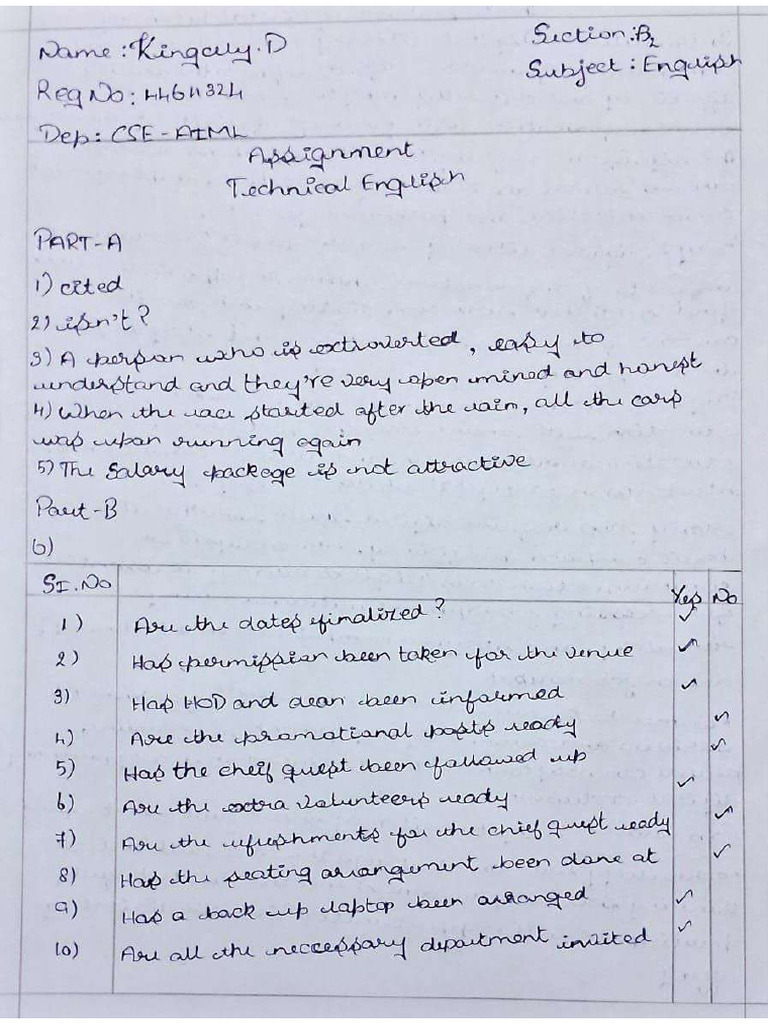 Name: Kingcily.D
Section: B2
Reg No: 4464324
Subject: English
Dep: CSE-AIML
Assignment
Technical English
PART-A
1) cited
2) isn't?
3) A person who is extroverted, easy to
understand and they're very open mined and honest
4) When the race started after the rain, all the cars
was upon running again
5) The Salary package is not attractive
Part-B
6)
SI.No Yes No
1) Are the dates finalized? ✓
2) Has permission been taken for the venue ✓
3) Has HOD and dean been informed ✓
4) Are the promotional posts ready ✓
5) Has the cheif guest been followed up ✓
6) Are the extra volunteers ready ✓
7) Are the refreshments for the chief guest ready ✓
8) Has the seating arrangement been done at ✓
9) Has a back up laptop been arranged ✓
10) Are all the neccessary department invited ✓